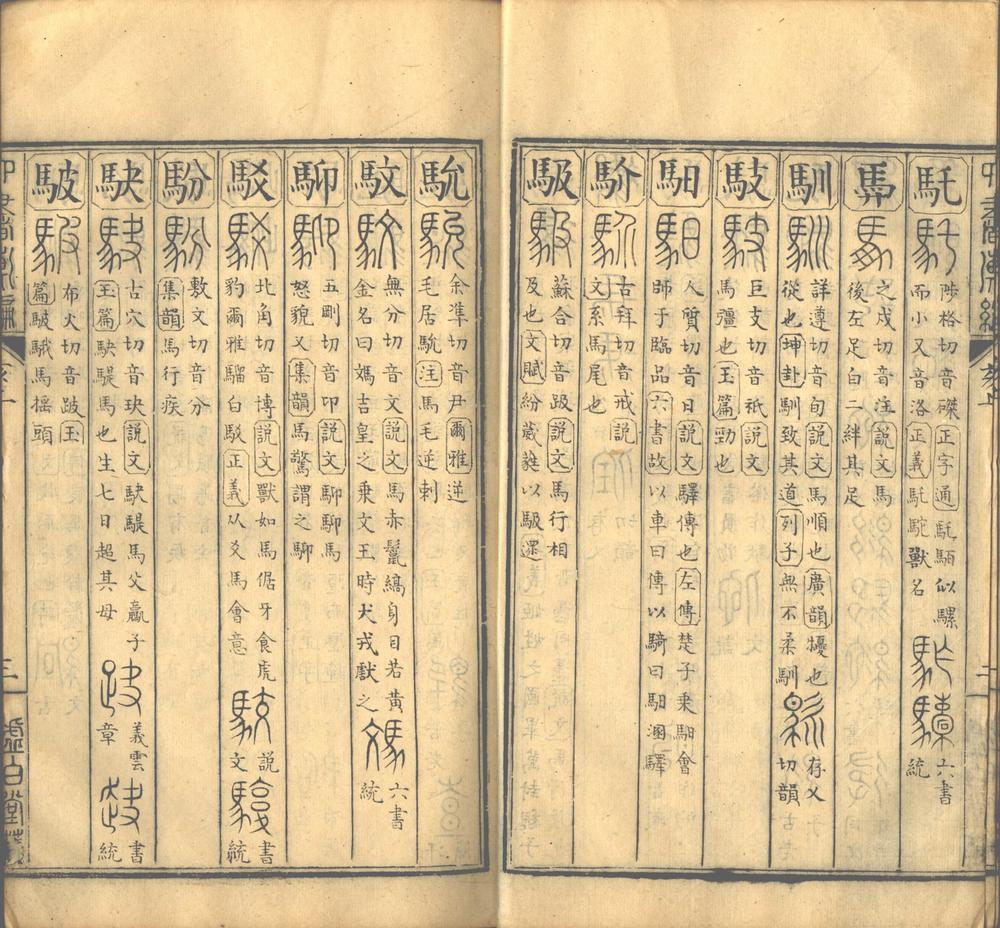 馲 陟格切音磔正字通馲駓似騾而小又音洛正義馲駝獸名 六書統
馵 之戍切音注說文馬後左足白二絆其足
馴 詳遵切音旬說文馬順也廣韻擾也從也坤卦馴致其道列子無不柔馴 存乂切韻
馶 巨支切音祇說文馬彊也玉篇勁也
馹 人質切音日說文驛傳也左傳楚子乘馹會師于臨品六書故以車曰傳以騎曰馹溷驛
馻 古拜切音戒說文系馬尾也
馺 蘇合切音趿說文馬行相及也文賦紛葳蕤以馺遝
馻 余準切音尹爾雅逆毛居馻注馬毛逆刺
馼 無分切音文說文馬赤鬣縞身目若黃金名曰媽吉皇之乘文王時犬戎獻之 六書統
馰 五剛切音卬說文馬怒貌又集韻馬驚謂之
駁 北角切音博說文獸如馬倨牙食虎豹爾雅騮白駁正義从爻馬會意 說文 書統
馚 敷文切音分集韻馬行疾
駃 古穴切音玦說文駃騠馬父驘子玉篇駃騠馬也生七日超其母 義雲章 書統
駊 布火切音跛玉篇駊騀馬搖頭
虛白堂藏